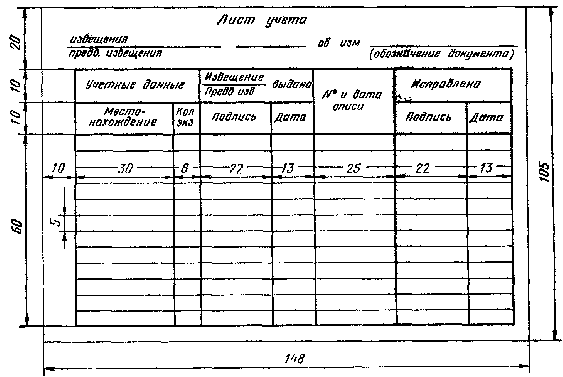 Лист учета
извещения
предв. извещения
об изм
(обозначение документа)
20
Учетные данные
Извещение
Предв изв
выдано
№ и дата описи
Исправлена
10
Место-
нахождение
Кол
экз
Подпись
Дата
Подпись
Дата
10
10
30
8
22
13
25
22
13
105
60
5
148